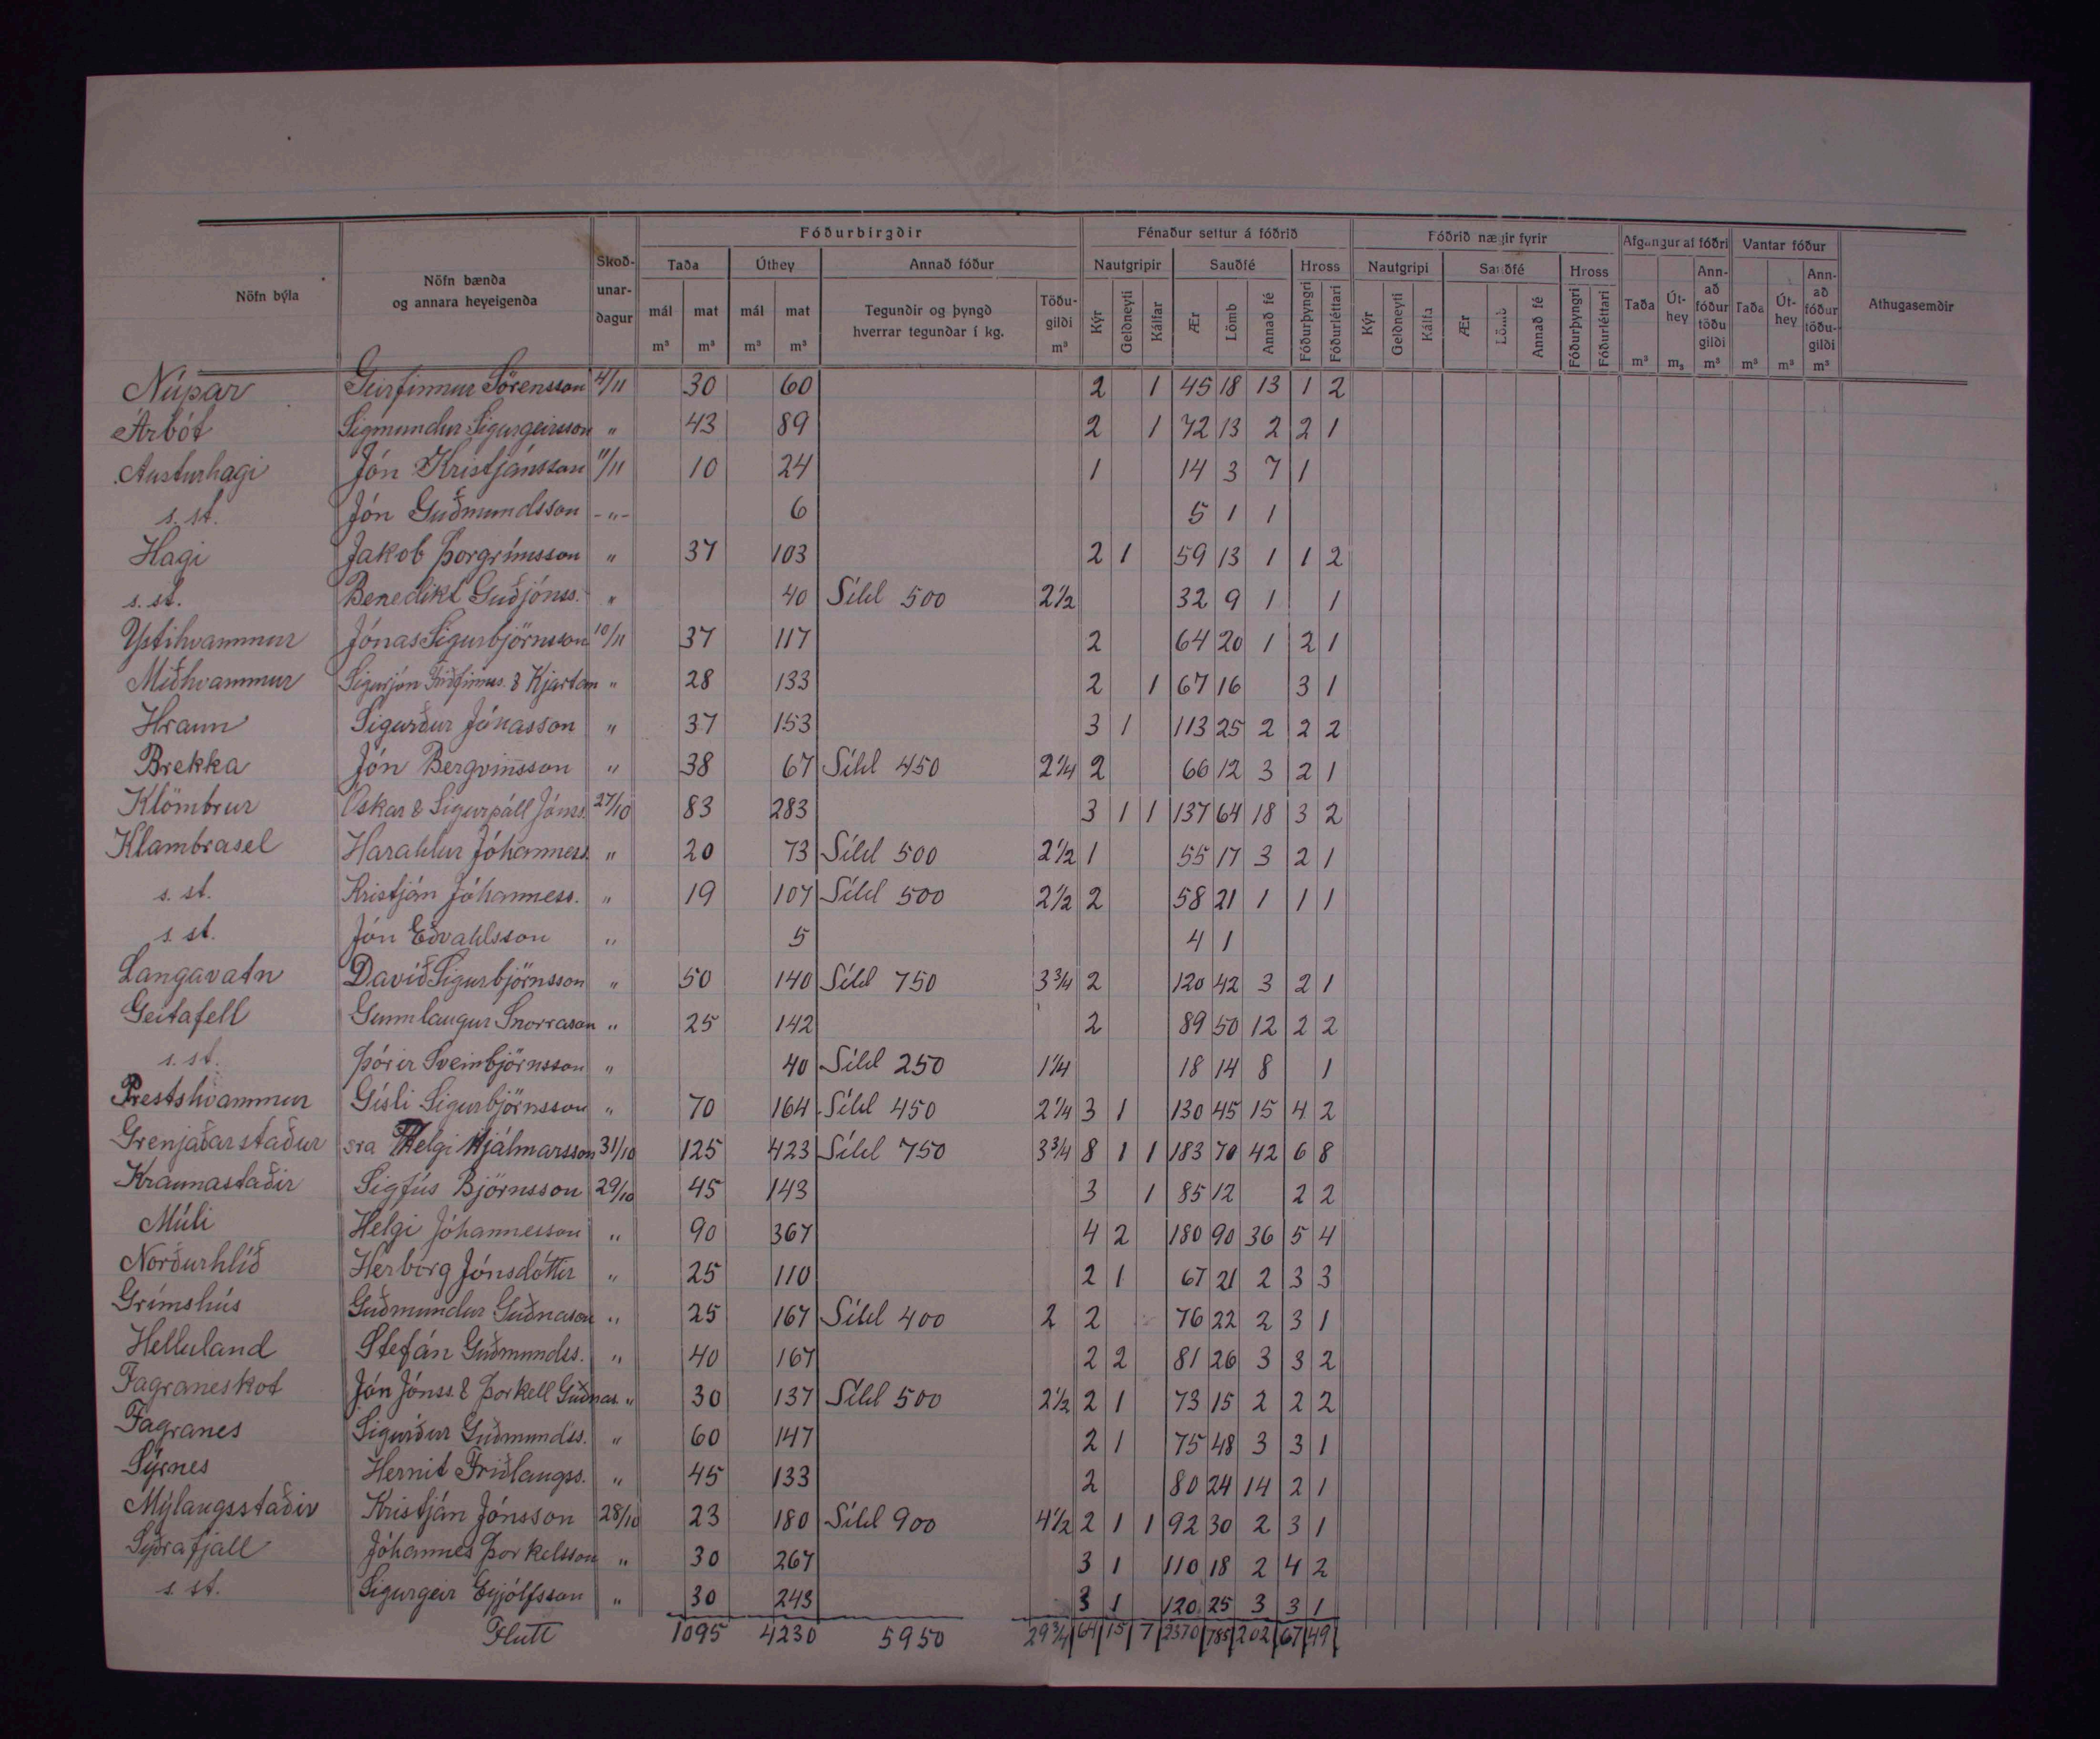 Fóðurbirgðir Fénaður settur á fóðrið Fóðrið nægir fyrir Afgangur af fóðri Vantar fóður
Nöfn býla Nöfn bænda og annara heyeigenda Skoð-unar-dagur Taða Úthey Annað fóður Nautgripir Sauðfé Hross Nautgripi Sauðfé Hross Taða Út-hey Ann-að fóður töðu gildi Taða Út-hey Ann-að fóður töðu-gildi Athugasemdir
mál mat mál mat Tegundir og þyngd hverrar tegundar í kg. Töðu-gildi Kýr Geldneyti Kálfar Ær Lömb Annað fé Fóðurþyngri Fóðurléttari Kýr Geldneyti Kálfa Ær Lömb Annað fé Fóðurþyngri Fóðurléttari
m³ m³ m³ m³ m³ m³ m₃ m³ m³ m³ m³
Núpar Geirfinnur Sörensson 4/11 30 60 2 1 45 18 13 1 2
Árbót Sigmundur Sigurgeirsson " 43 89 2 1 72 13 2 2 1
Austurhagi Jón Kristjánsson 11/11 10 24 1 14 3 7 1
s. st. Jón Guðmundsson -"- 6 5 1 1
Hagi Jakob Þorgrímsson " 37 103 2 1 59 13 1 1 2
s. st. Benedikt Guðjónss. " 40 Síld 500 2½ 32 9 1 1
Ystihvammur Jónas Sigurbjörnsson 10/11 37 117 2 64 20 1 2 1
Miðhvammur Sigurjón Friðfinns. & Kjartan " 28 133 2 1 67 16 3 1
Hraun Sigurður Jónasson " 37 153 3 1 113 25 2 2 2
Brekka Jón Bergvinsson " 38 67 Síld 450 2¼ 2 66 12 3 2 1
Klömbrur Óskar & Sigurpáll Jónss. 27/10 83 283 3 1 1 137 64 18 3 2
Klambrasel Haraldur Jóhanness. " 20 73 Síld 500 2½ 1 55 17 3 2 1
s. st. Kristján Jóhanness. " 19 107 Síld 500 2½ 2 58 21 1 1 1
s. st. Jón Eðvaldsson " 5 4 1
Langavatn Davíð Sigurbjörnsson " 50 140 Síld 750 3¾ 2 120 42 3 2 1
Geitafell Gunnlaugur Snorrason " 25 142 2 89 50 12 2 2
s. st. Þórir Sveinbjörnsson " 40 Síld 250 1¼ 18 14 8 1
Prestshvammur Gísli Sigurbjörnsson " 70 164 Síld 450 2¼ 3 1 130 45 15 4 2
Grenjaðarstaður sra Helgi Hjálmarsson 31/10 125 423 Síld 750 3¾ 8 1 1 183 70 42 6 8
Kraunastaðir Sigfús Björnsson 29/10 45 143 3 1 85 12 2 2
Múli Helgi Jóhannesson " 90 367 4 2 180 90 36 5 4
Norðurhlíð Herborg Jónsdóttir " 25 110 2 1 67 21 2 3 3
Grímshús Guðmundur Guðnason " 25 167 Síld 400 2 2 76 22 2 3 1
Helluland Stefán Guðmundss. " 40 167 2 2 81 26 3 3 2
Fagraneskot Jón Jónss. & Þorkell Guðnas. " 30 137 Síld 500 2½ 2 1 73 15 2 2 2
Fagranes Sigurður Guðmundss. " 60 147 2 1 75 48 3 3 1
Sýrnes Hernit Friðlaugss. " 45 133 2 80 24 14 2 1
Mýlaugsstaðir Kristján Jónsson 28/10 23 180 Síld 900 4½ 2 1 1 92 30 2 3 1
Syðrafjall Jóhannes Þorkelsson " 30 267 3 1 110 18 2 4 2
s. st. Sigurgeir Eyjólfsson " 30 243 3 1 120 25 3 3 1
Flutt 1095 4230 5950 29¾ 64 15 7 2370 785 202 67 49